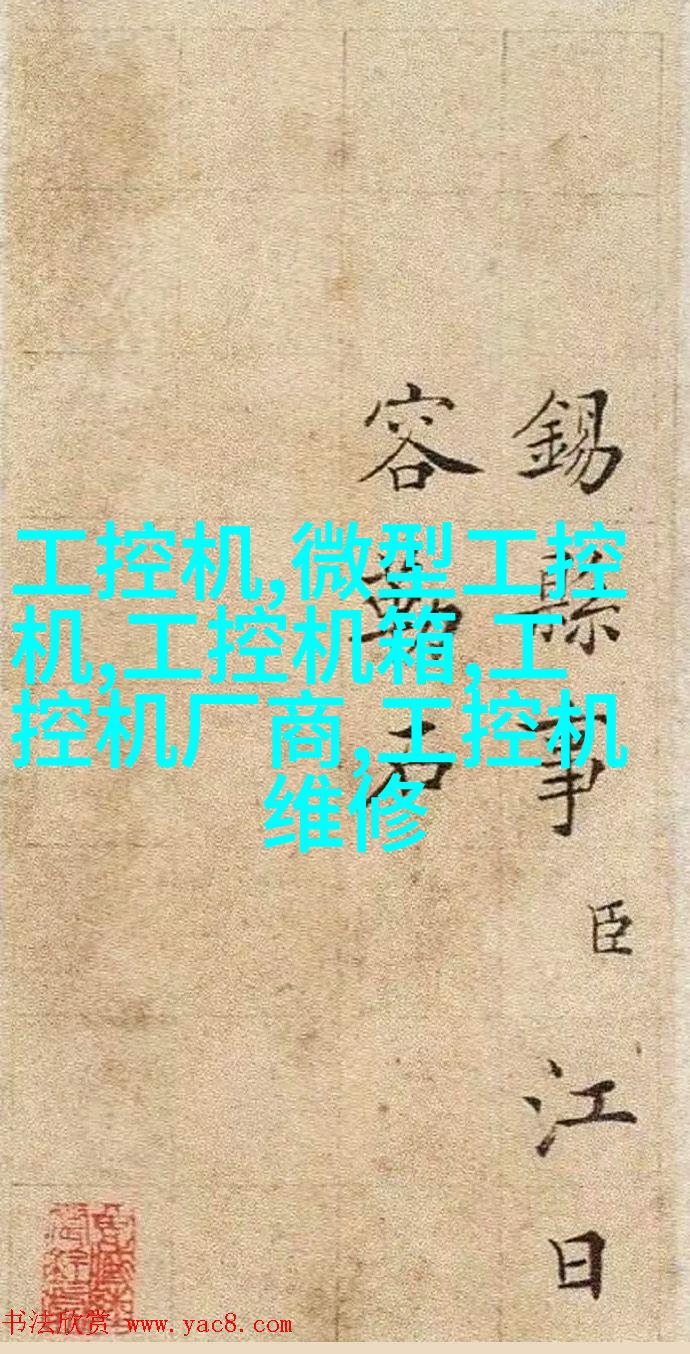 錫縣事臣江日
容勒石
工控机,微型工控
机,工控机箱,工
控机厂商,工控机
维修
书法欣赏 www.yac8.com